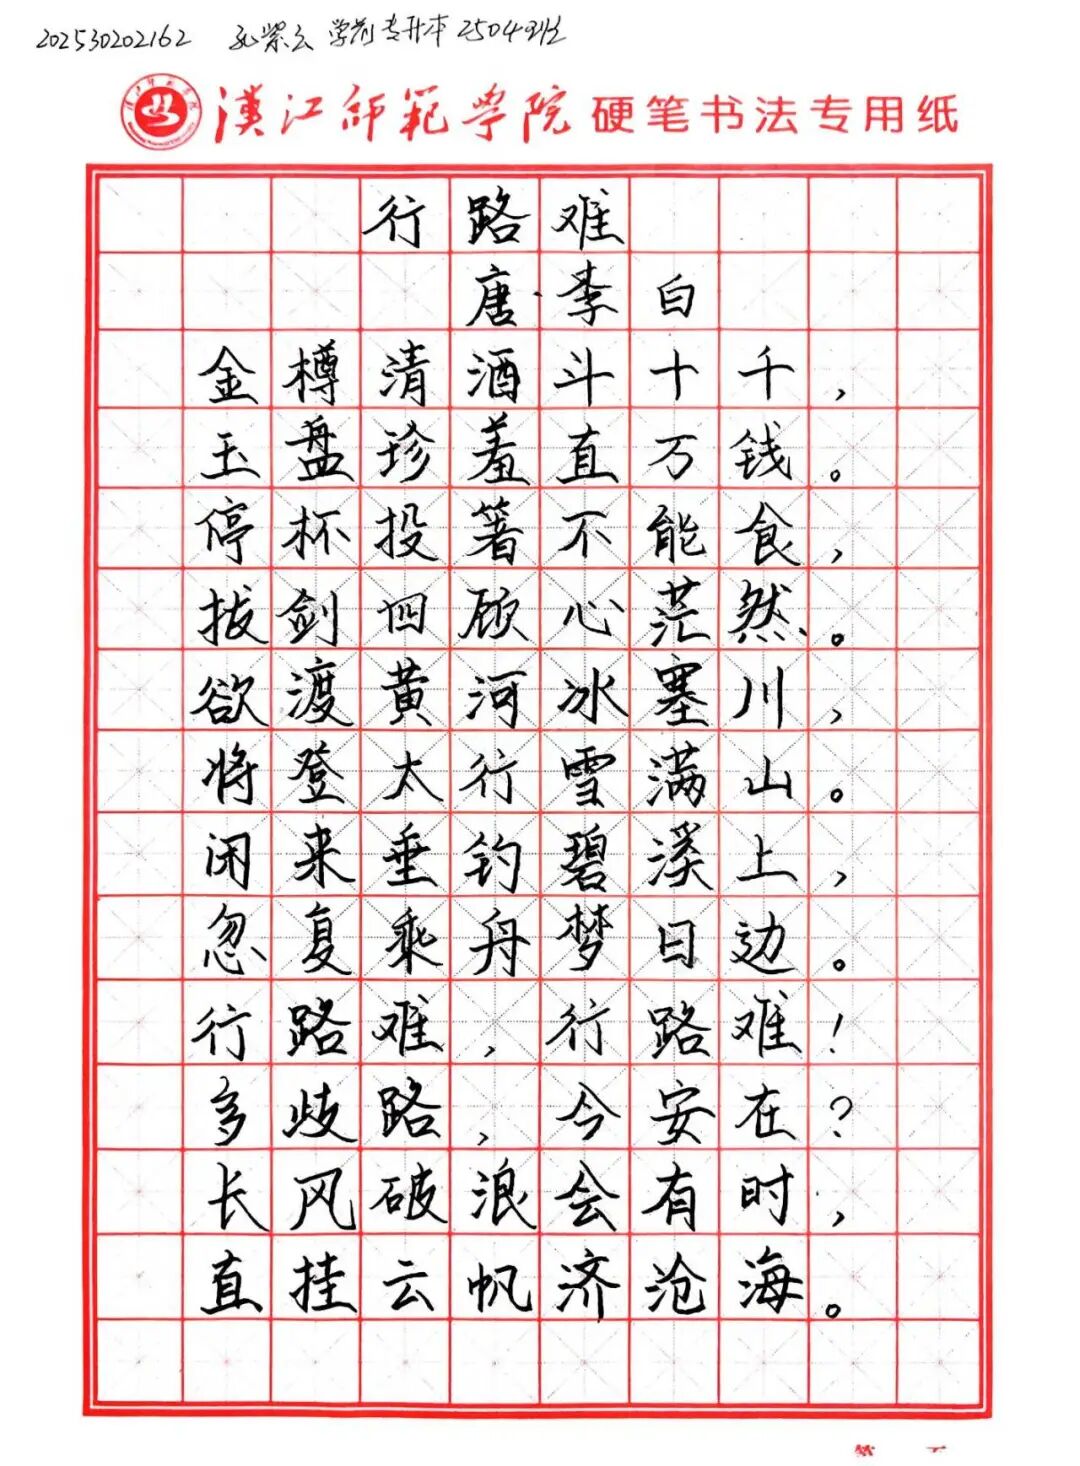 202530202162 孔紫云 学前专升本2504班
漢江師範學院 硬笔书法专用纸
行路难
唐·李白
金樽清酒斗十千，
玉盘珍羞直万钱。
停杯投箸不能食，
拔剑四顾心茫然。
欲渡黄河冰塞川，
将登太行雪满山。
闲来垂钓碧溪上，
忽复乘舟梦日边。
行路难，行路难！
多歧路，今安在？
长风破浪会有时，
直挂云帆济沧海。